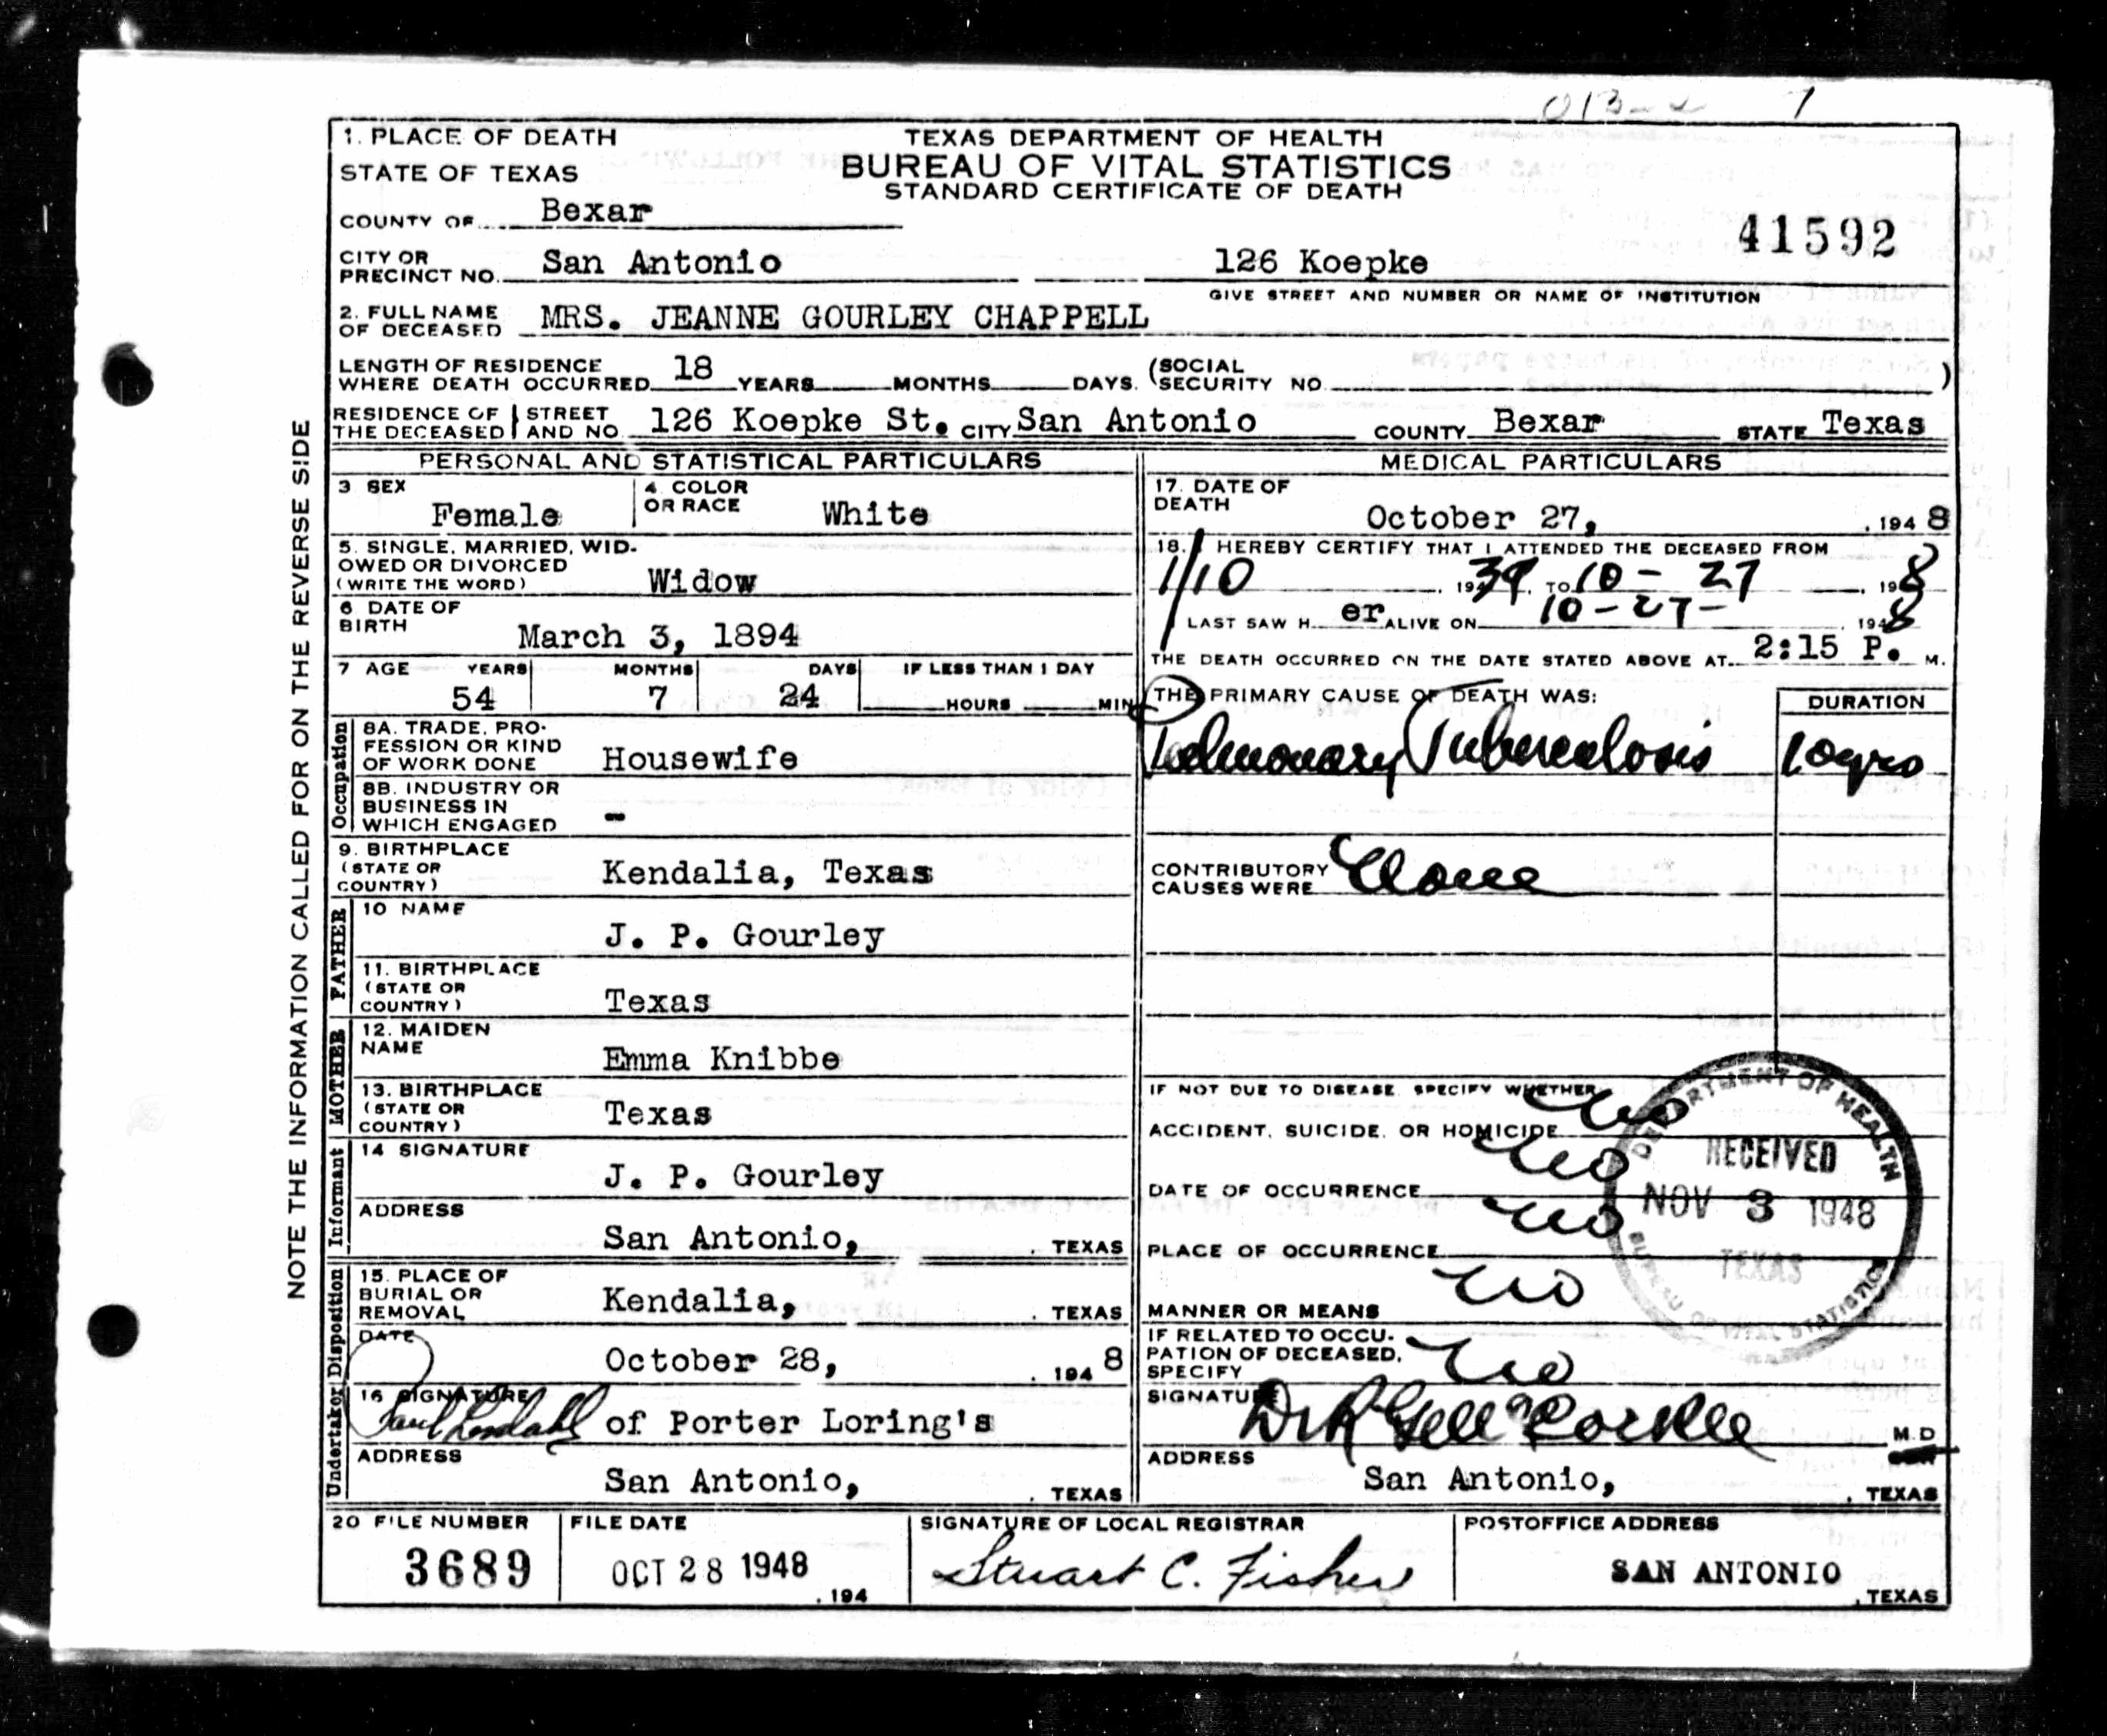 1. PLACE OF DEATH
STATE OF TEXAS
TEXAS DEPARTMENT OF HEALTH
BUREAU OF VITAL STATISTICS
STANDARD CERTIFICATE OF DEATH
COUNTY OF Bexar
41592
CITY OR PRECINCT NO. San Antonio 126 Koepke
GIVE STREET AND NUMBER OR NAME OF INSTITUTION
2. FULL NAME OF DECEASED MRS. JEANNE GOURLEY CHAPPELL
LENGTH OF RESIDENCE WHERE DEATH OCCURRED 18 YEARS MONTHS DAYS. (SOCIAL SECURITY NO. )
RESIDENCE OF THE DECEASED STREET AND NO. 126 Koepke St. CITY San Antonio COUNTY Bexar STATE Texas
NOTE THE INFORMATION CALLED FOR ON THE REVERSE SIDE
PERSONAL AND STATISTICAL PARTICULARS
3 SEX Female
4. COLOR OR RACE White
5. SINGLE, MARRIED, WIDOWED OR DIVORCED (WRITE THE WORD) Widow
6 DATE OF BIRTH March 3, 1894
7 AGE YEARS MONTHS DAYS IF LESS THAN 1 DAY
54 7 24 HOURS MIN
Occupation
8A. TRADE, PROFESSION OR KIND OF WORK DONE Housewife
8B. INDUSTRY OR BUSINESS IN WHICH ENGAGED -
9. BIRTHPLACE (STATE OR COUNTRY) Kendalia, Texas
FATHER
10 NAME J. P. Gourley
11. BIRTHPLACE (STATE OR COUNTRY) Texas
MOTHER
12. MAIDEN NAME Emma Knibbe
13. BIRTHPLACE (STATE OR COUNTRY) Texas
Informant
14 SIGNATURE J. P. Gourley
ADDRESS San Antonio, . TEXAS
Disposition
15. PLACE OF BURIAL OR REMOVAL Kendalia, . TEXAS
DATE October 28, . 194 8
Undertaker
16 SIGNATURE of Porter Loring's
ADDRESS San Antonio, . TEXAS
MEDICAL PARTICULARS
17. DATE OF DEATH October 27, . 194 8
18. I HEREBY CERTIFY THAT I ATTENDED THE DECEASED FROM
1/10 , 1939, TO 10-27 , 1948
LAST SAW H er ALIVE ON 10-27- , 1948
THE DEATH OCCURRED ON THE DATE STATED ABOVE AT 2:15 P. M.
THE PRIMARY CAUSE OF DEATH WAS: DURATION
Pulmonary Tuberculosis 10 yrs
CONTRIBUTORY CAUSES WERE None
IF NOT DUE TO DISEASE, SPECIFY WHETHER
ACCIDENT, SUICIDE, OR HOMICIDE no
DATE OF OCCURRENCE no
PLACE OF OCCURRENCE no
MANNER OR MEANS no
IF RELATED TO OCCUPATION OF DECEASED, SPECIFY no
DEPARTMENT OF HEALTH
RECEIVED
NOV 3 1948
TEXAS
BUREAU OF VITAL STATISTICS
SIGNATURE M.D
ADDRESS San Antonio, . TEXAS
20 FILE NUMBER FILE DATE SIGNATURE OF LOCAL REGISTRAR POSTOFFICE ADDRESS
3689 OCT 28 1948 , 194 Stuart C. Fisher SAN ANTONIO , TEXAS